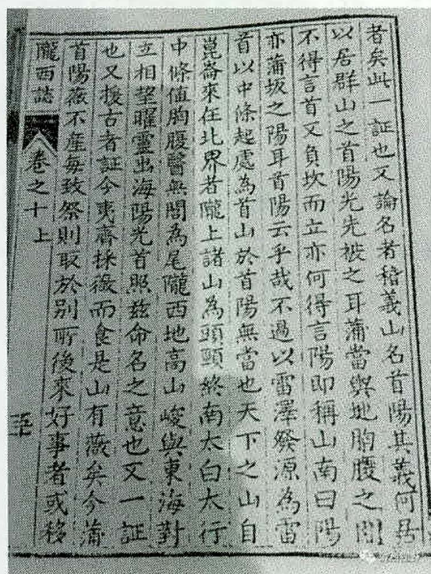 者矣此一証也又論名者稽義山名首陽其義何居
以居群山之首陽光先被之耳蒲當輿地胸腹之間
不得言首又負坎而立亦何得言陽即稱山南曰陽
亦蒲坂之陽耳首陽云乎哉不過以雷澤發源為雷
首以中條起處為首山於首陽無當也天下之山自
崑崙來在北界者隴上諸山為頭頸終南太白太行
中條值胸腹醫無閭為尾隴西地高山峻與東海對
立相望曜靈出海陽光首照茲命名之意也又一証
也又援古者証今夷齊採薇而食是山有薇矣今蒲
首陽薇不產每致祭則取於別所後來好事者或移
隴西誌 卷之十上